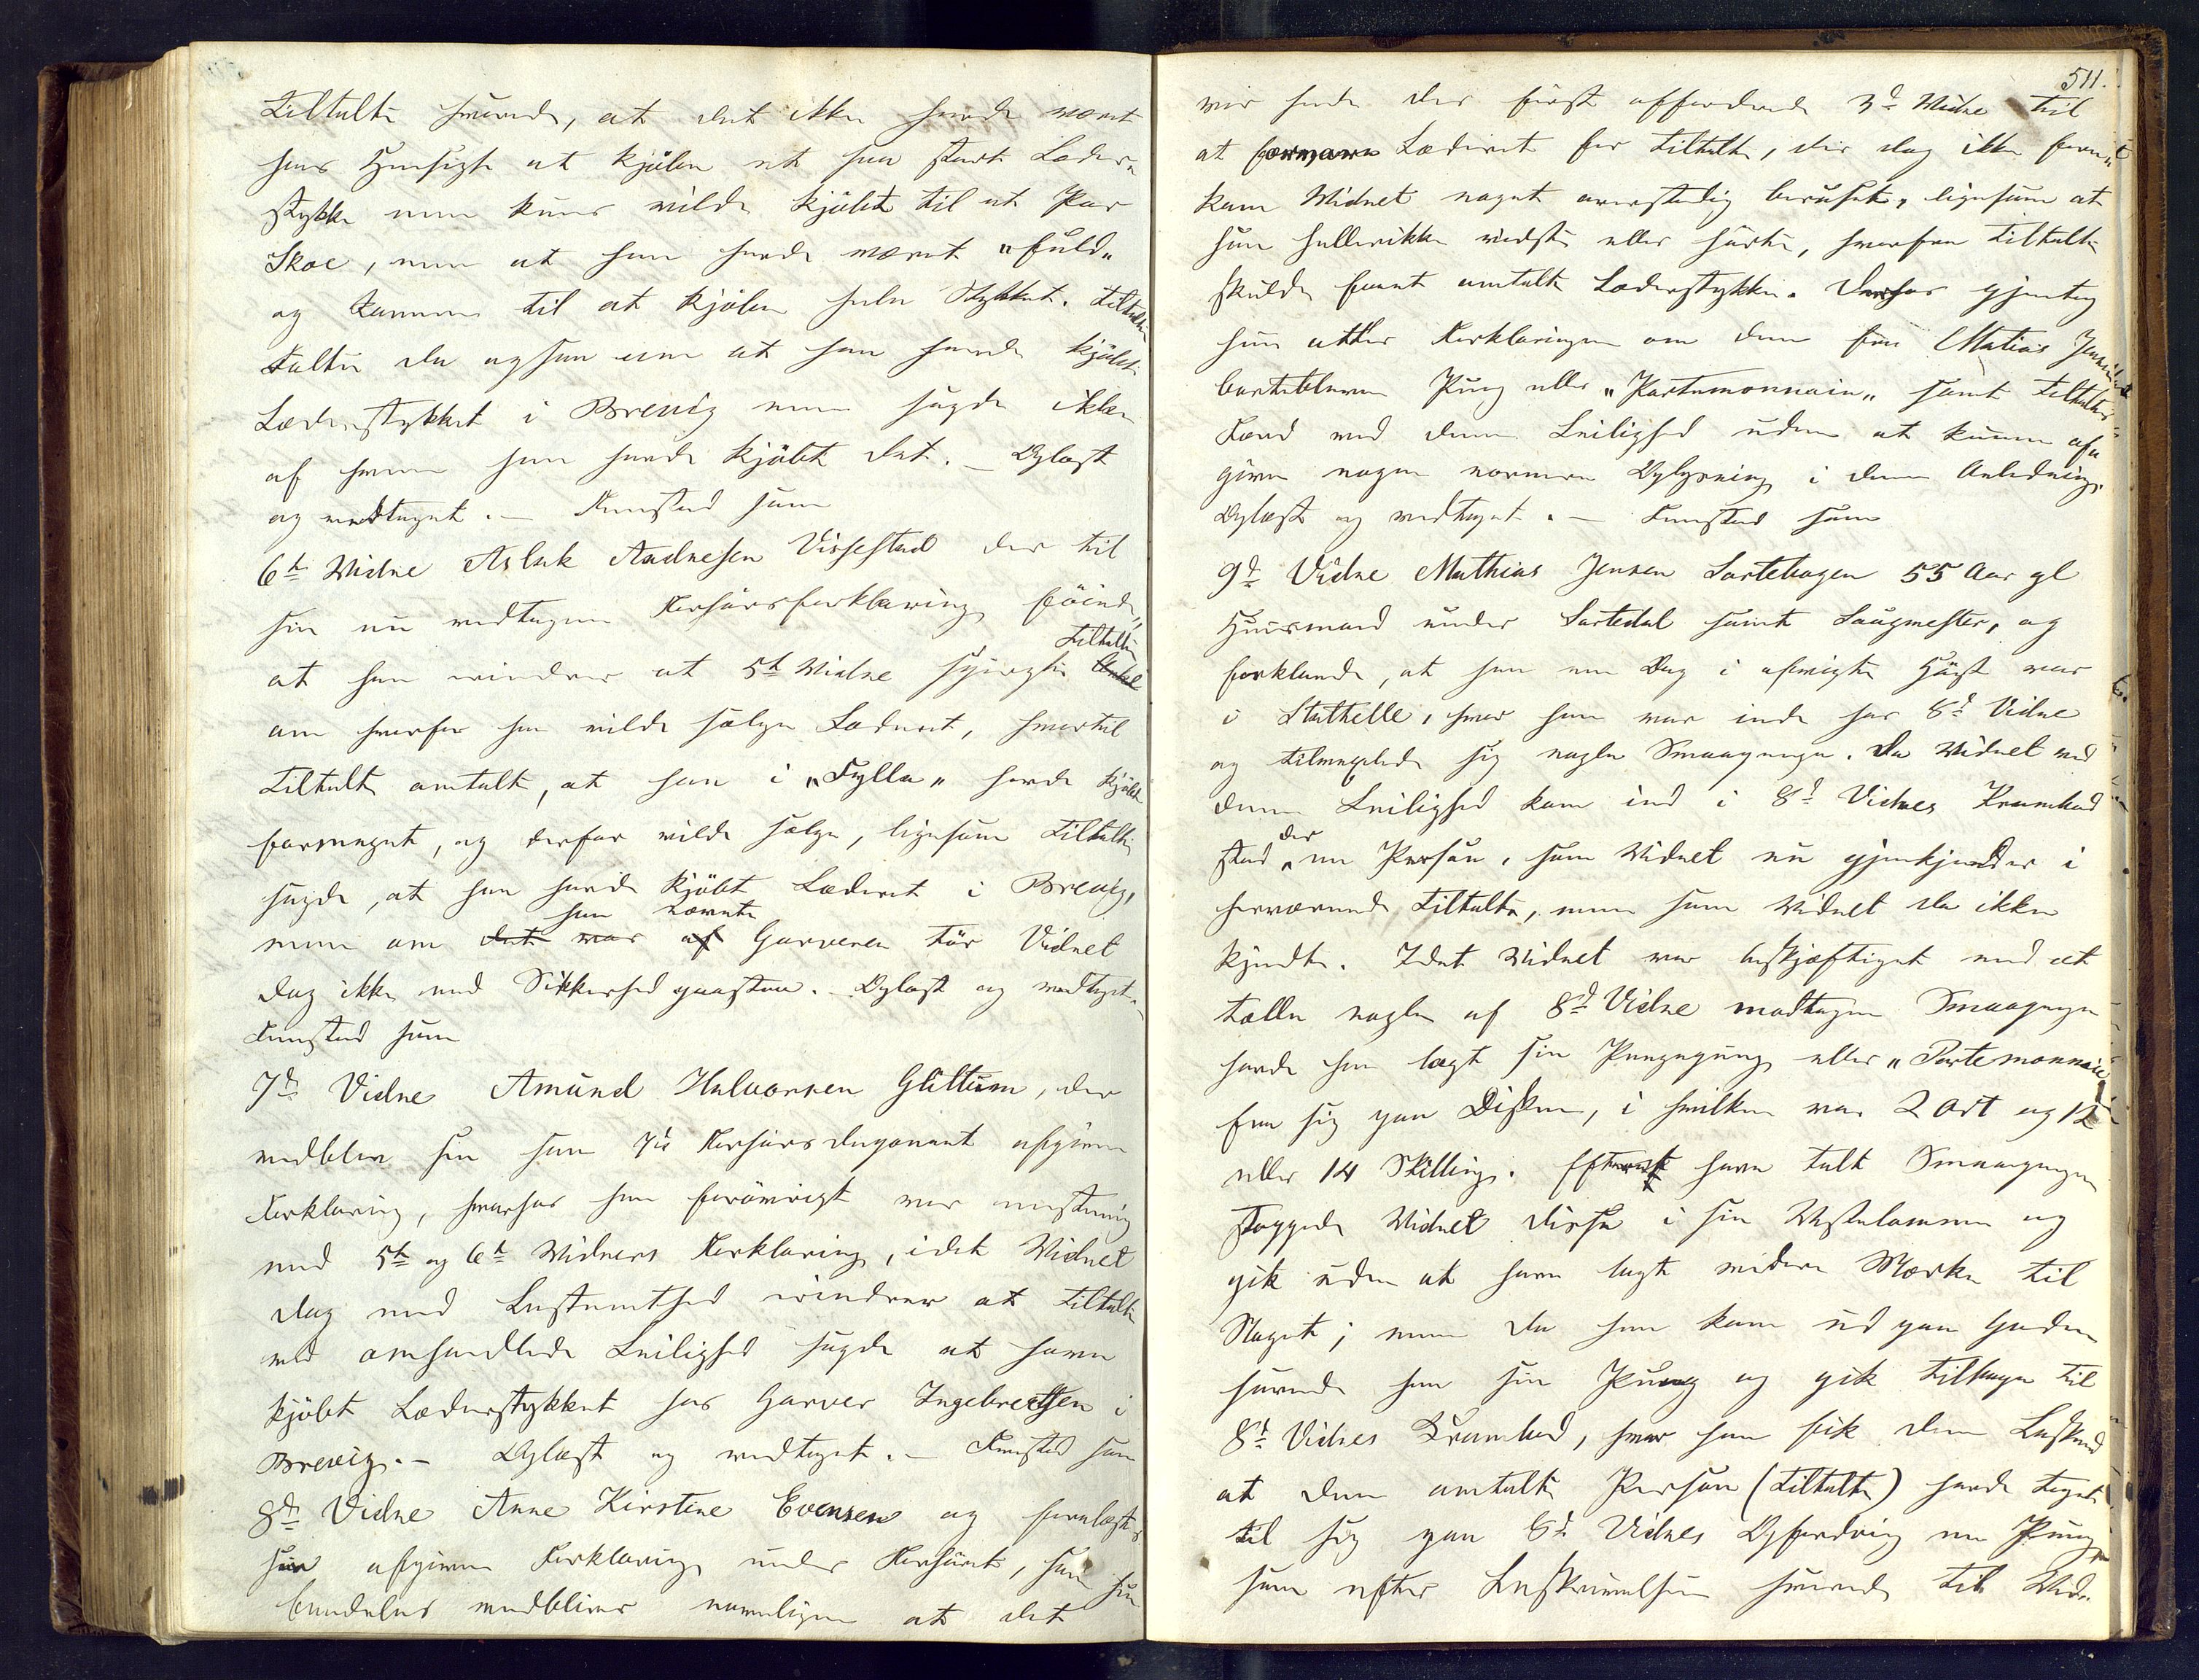 Tiltalte svarede, at det ikke havde været
hans Hensigt at kjøbe et saa stort Læder-
stykke men kuns vilde kjøbt til et Par
Skoe, men at han havde været "fuld"
og kommen til at kjøbe hele Stykket. Tiltalte
talte da ogsaa om at han havde kjøbt
Læderstykket i Brevig men sagde ikke
af hvem han havde kjøbt det. — Oplæst
og vedtaget. — Fremstod som
6te Vidne Aslak Andresen Vissestad der til
sin nu vedtagne Forhørsforklaring føiede,
at han erindrer at 5te Vidne spurgte Tiltalte
om hvorfor han vilde sælge Læderet, hvortil
Tiltalte omtalte, at han i "Fylla" havde kjøbt
formeget, og derfor vilde sælge, ligesom Tiltalte
sagde, at han havde kjøbt Læderet i Brevig,
men om det var af han nævnte Garveren tør Vidnet
dog ikke med Sikkerhed paastaa. Oplæst og vedtaget.
Fremstod som
7de Vidne Amund Halvorsen Glittum, der
vedblev sin som 7de Forhørsdeponent afgivne
Forklaring, hvorhos han forøvrigt var enstemig
med 5te og 6te Vidners Forklaring, idet Vidnet
dog med Bestemthed erindrer at Tiltalte
ved omhandlede Leilighed sagde at have
kjøbt Læderstykket hos Garver Ingebretsen i
Brevig. — Oplæst og vedtaget. — Fremstod som
8de Vidne Anne Kirstine Evensen og forelæst
sin afgivne Forklaring under Forhøret, som hun
vedbliver navnligen at det
511.
var hende der først opfordrede 3de Vidne til
at forvare Læderet for Tiltalte, der dog ikke fore-
kom Vidnet noget overstadig beruset, ligesom at
hun hellerikke vidste eller hørte, hvorfra Tiltalte
skulde faaet omtalte Læderstykke. Derhos gjentog
hun atter Forklaringen om den fra Matias Jensen
bortblevne Pung eller "Portemonnaie" samt Tiltaltes
Færd ved denne Leilighed uden at kunne af-
give nogen nærmere Oplysning i denne Anledning.
Oplæst og vedtaget. — Fremstod som
9de Vidne Mathias Jensen Lartehagen 55 Aar gl
Huusmand under Lartedal samt Laugmester, og
forklarede, at han en Dag i afvigte Høst var
i Stathelle, hvor han var inde hos 8de Vidne
og tilvexlede sig nogle Smaapenge. Da Vidnet ved
denne Leilighed kom ind i 8de Vidnes Krambod
stod der en Person, som Vidnet nu gjenkjender i
herværende Tiltalte, men som Vidnet da ikke
kjendte. Idet Vidnet var beskjæftiget med at
tælle nogle af 8de Vidne modtagne Smaapenge
havde han lagt sin Pengepung eller "Portemonnaie"
fra sig paa Disken, i hvilken var 2 Ort og 12
eller 14 Skilling. Efterat have talt Smaapengene
stoppede Vidnet disse i sin Vestelomme og
gik uden at have lagt videre Mærke til
Noget; men da han kom ud paa Gaden
savnede han sin Pung og gik tilbage til
8de Vidnes Krambod, hvor han fik den Besked
at den omtalte Person (Tiltalte) havde taget
til sig paa 8de Vidnes Opfordring en Pung
som efter Beskrivelsen svarede til Vid-